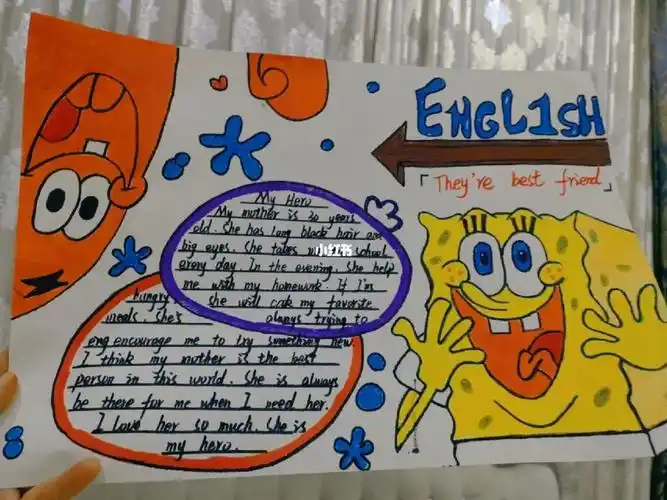 ENGL1SH
「They're best friend」
My Hero
My mother is 30 years
old. She has long black hair and
big eyes. She takes me to school
every day In the evening. She help
me with my homework. If I'm
hungry, she will cook my favorite
meals. She's always trying to
eng encourage me to try something new.
I think my mother is the best
person in this world. She is always
be there for me when I need her.
I love her so much. She is
my hero.
小红书